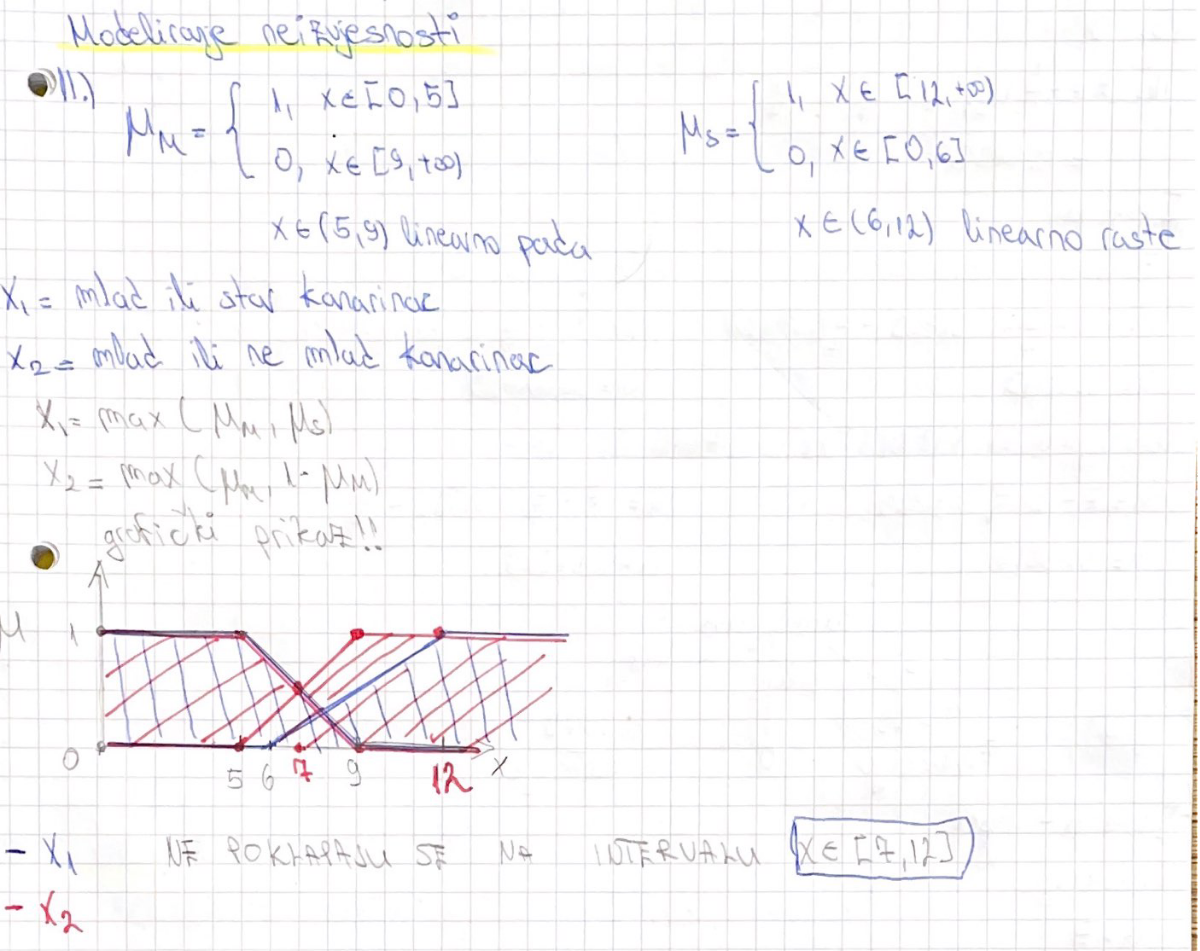 Modeliranje neizvjesnosti
11.) μM = { 1, x ∈ [0,5]
0, x ∈ [9,+∞)
x ∈ (5,9) linearno pada
μS = { 1, x ∈ [12,+∞)
0, x ∈ [0,6]
x ∈ (6,12) linearno raste
X1 = mlad ili star kanarinac
X2 = mlad ili ne mlad kanarinac
X1 = max (μM, μS)
X2 = max (μM, 1-μM)
grafički prikaz!!
μ 1
0 5 6 7 9 12 X
- X1 NE POKLAPAJU SE NA INTERVALU x ∈ [7,12]
- X2